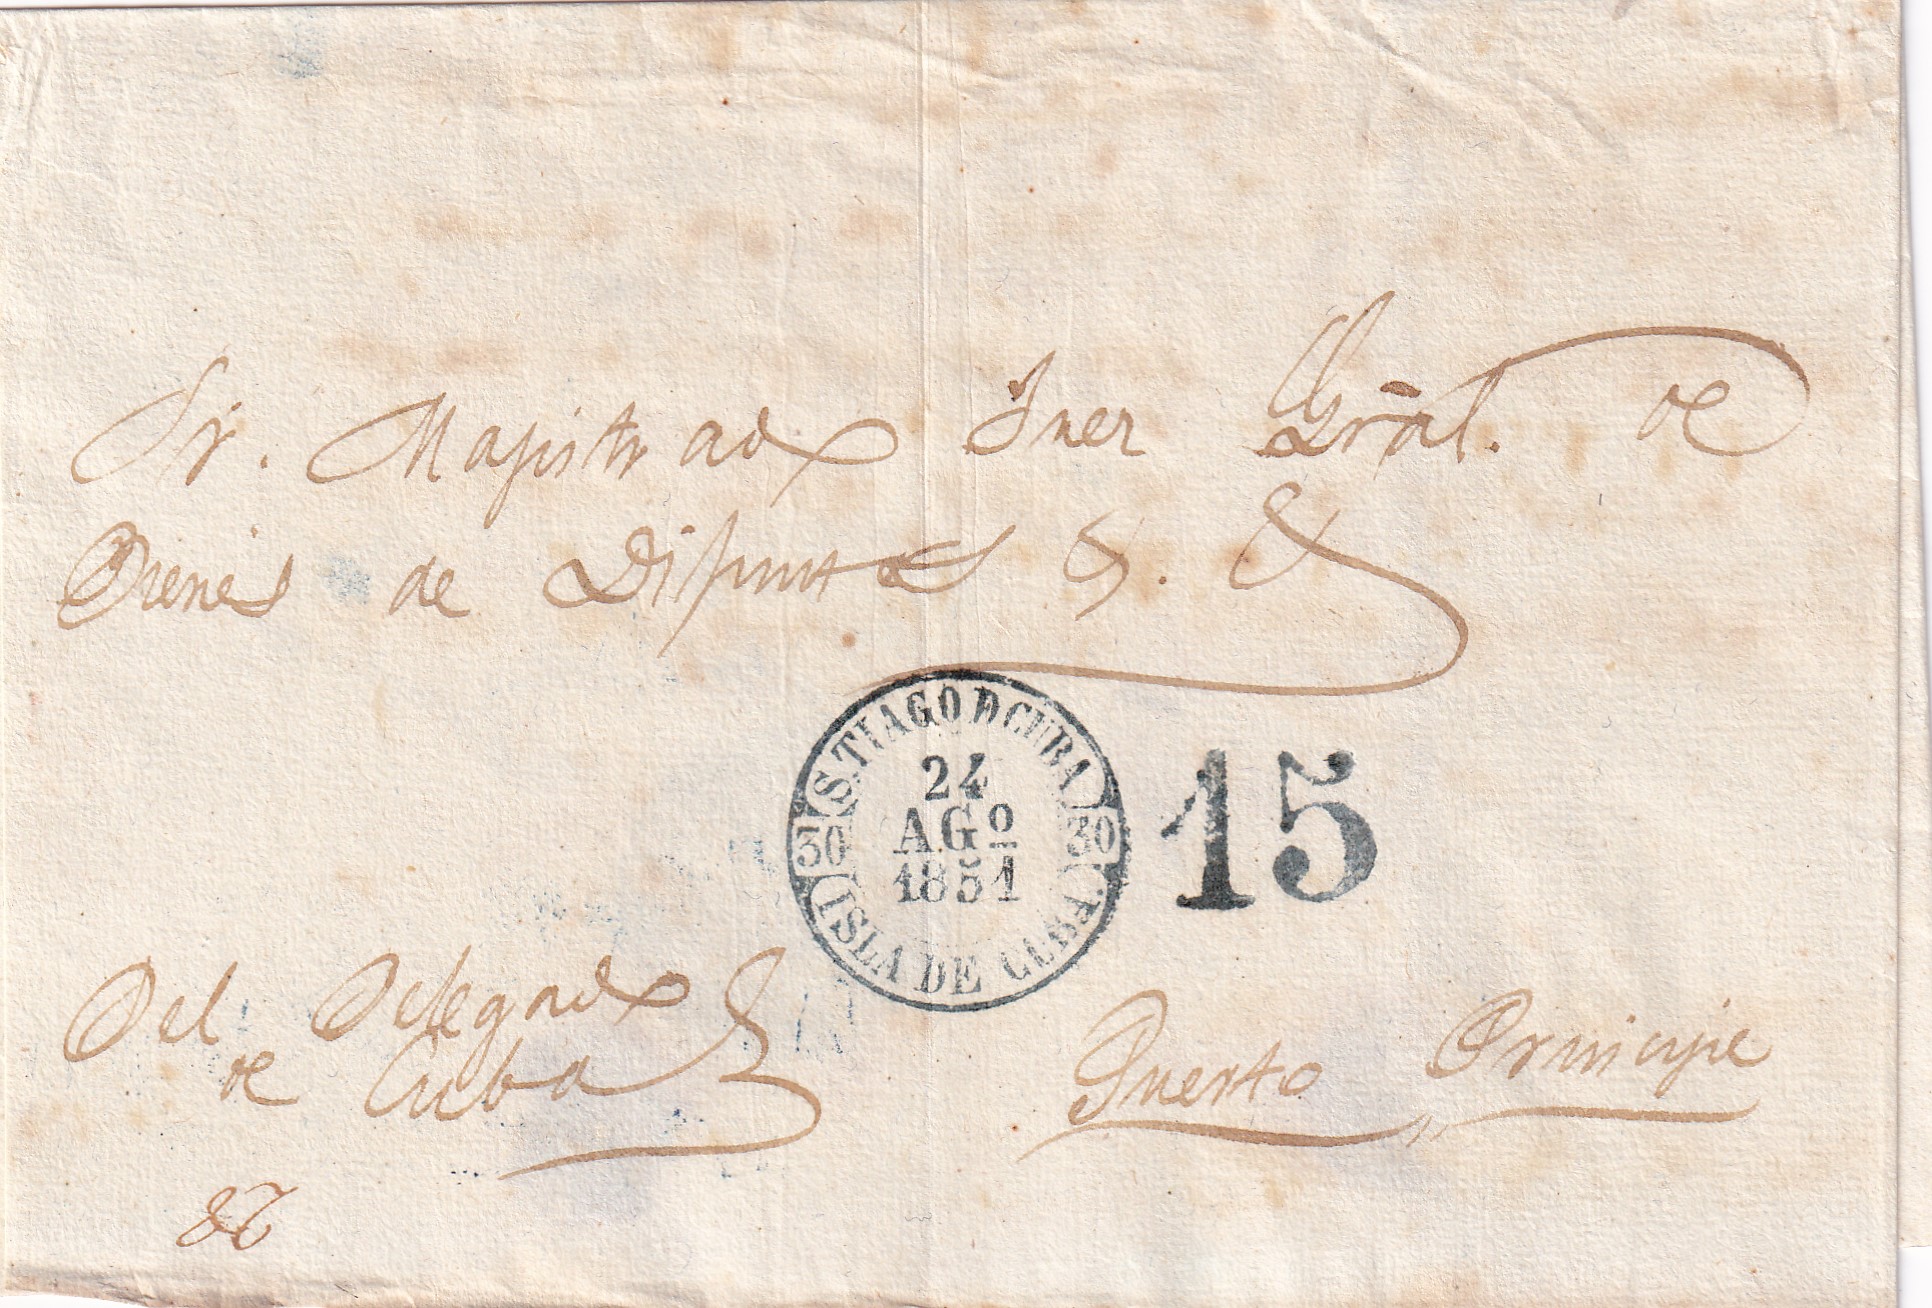 Sr. Magistrado Juez Grãl. de
Bienes de Difuntos &. &
S.TIAGO D CUBA
24
AGº
1851
30 30
ISLA DE CUBA
15
Del Delegado
de Cuba
Puerto Principe